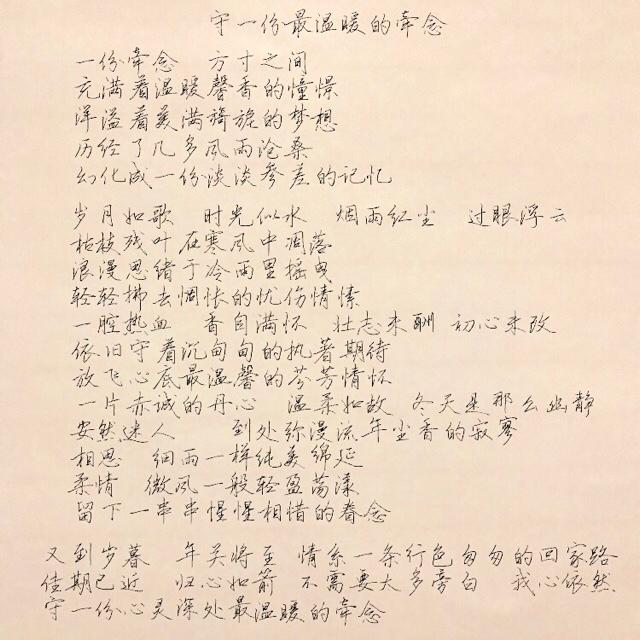 守一份最温暖的牵念
一份牵念 方寸之间
充满着温暖馨香的憧憬
洋溢着美满旖旎的梦想
历经了几多风雨沧桑
幻化成一份淡淡参差的记忆
岁月如歌 时光似水 烟雨红尘 过眼浮云
枯枝残叶在寒风中凋落
浪漫思绪于冷雨里摇曳
轻轻拂去惆怅的忧伤情愫
一腔热血 香自满怀 壮志未酬 初心未改
依旧守着沉甸甸的执著期待
放飞心底最温馨的芬芳情怀
一片赤诚的丹心 温柔如故 冬天是那么幽静
安然迷人 到处弥漫流年尘香的寂寥
相思 细雨一样纯美绵延
柔情 微风一般轻盈荡漾
留下一串串惺惺相惜的眷念
又到岁暮 年关将至 情系一条行色匆匆的回家路
佳期已近 归心如箭 不需要太多旁白 我心依然
守一份心灵深处最温暖的牵念